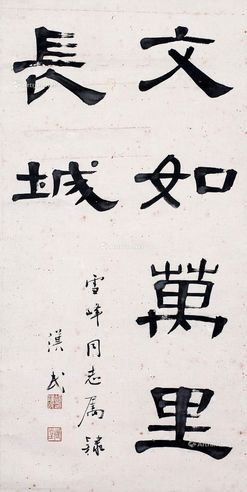 文如萬里
長城
雪峰同志属隸
漢民